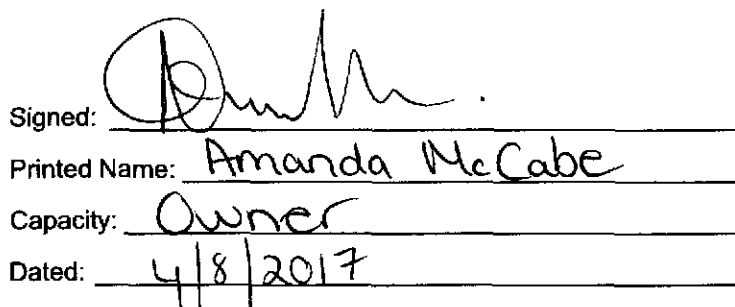 Signed:
Printed Name: Amanda McCabe
Capacity: Owner
Dated: 4/8/2017